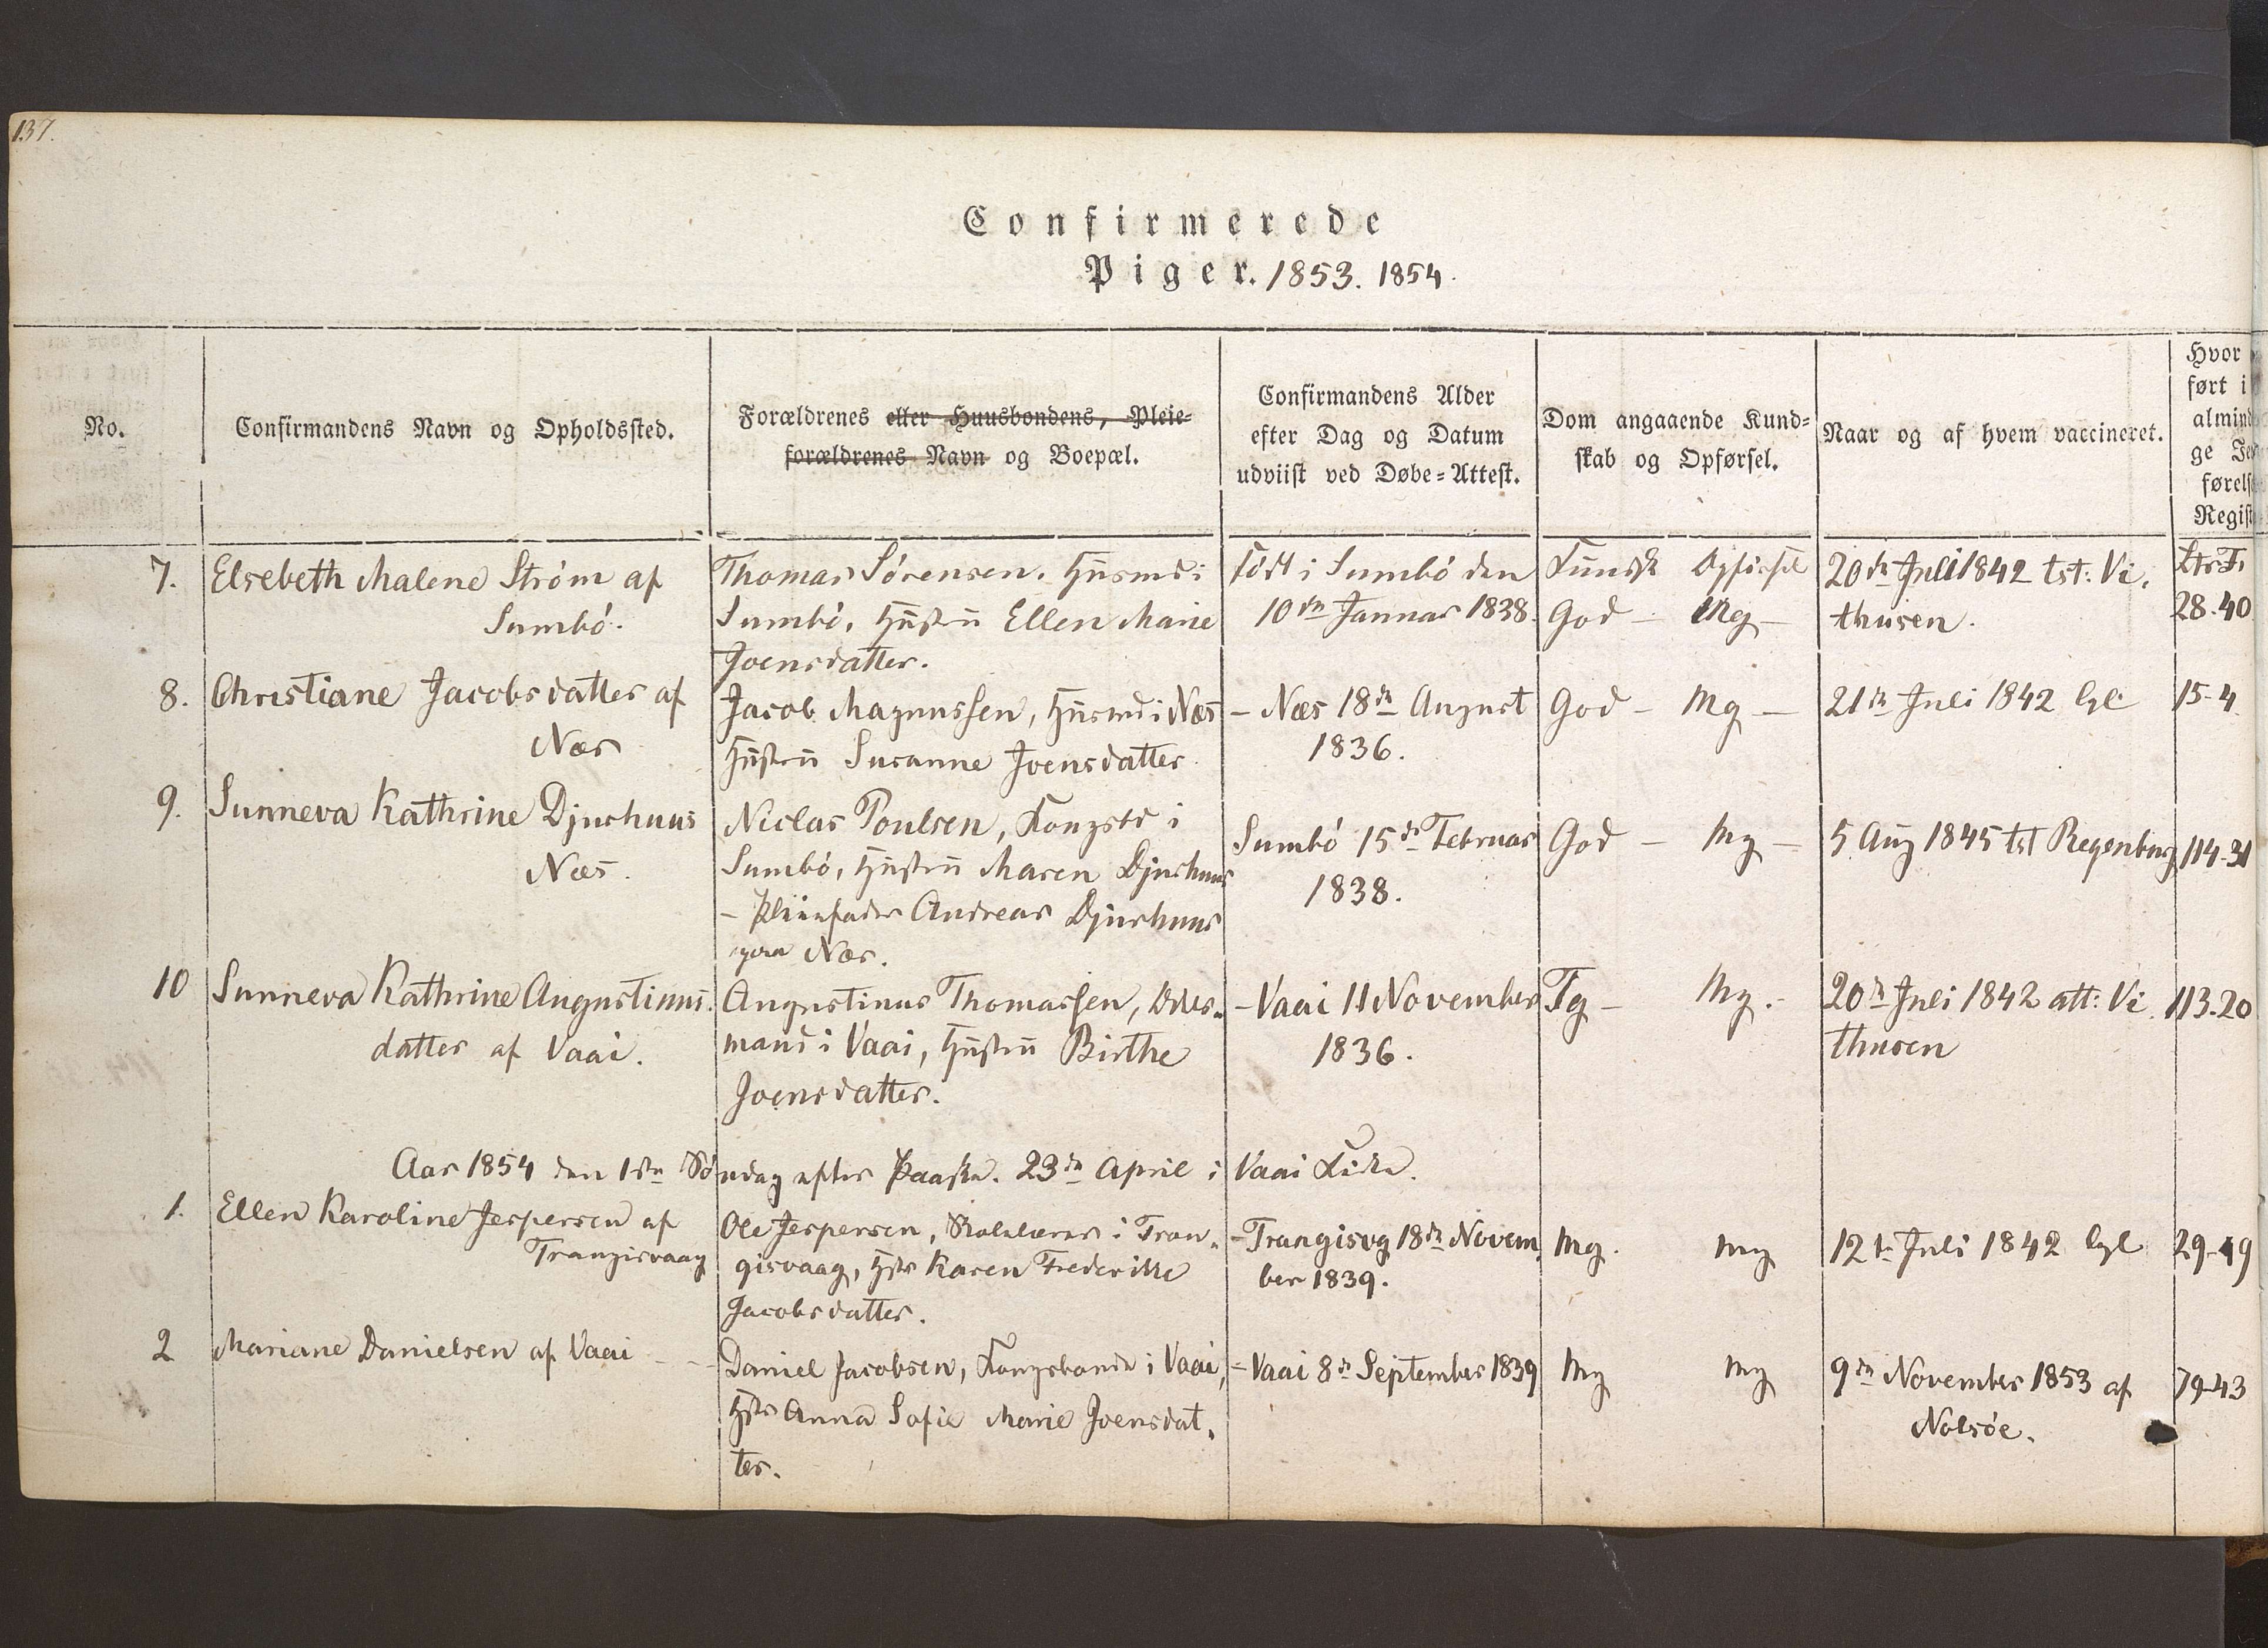 137.
Confirmerede
Piger. 1853. 1854.
No.
Confirmandens Navn og Opholdssted.
Forældrenes eller Huusbondens, Pleie-
forældrenes Navn og Boepæl.
Confirmandens Alder
efter Dag og Datum
udviist ved Døbe-Attest.
Dom angaaende Kund-
skab og Opførsel.
Naar og af hvem vaccineret.
Hvor
ført i
almind
ge Je
førels
Regist
7.
Elsebeth Malene Strøm af
Sumbó.
Thomas Sørensen. Husmd i
Sumbó, Hustru Ellen Marie
Joensdatter.
født i Sumbó den
10de Januar 1838.
Kundsk Opførsel
God – Mg –
20de Juli 1842 tst: Vi.
thusen.
Ltr. F.
28-40
8.
Christiane Jacobsdatter af
Næs
Jacob Magnussen, Husmd i Næs
Hustru Susanne Joensdatter
– Næs 18de August
1836.
God – Mg –
21de Juli 1842
15-4
9.
Sunneva Kathrine Djurhuus
Næs.
Niclas Poulsen, Kongsbd i
Sumbó, Hustru Maren Djurhuus
– Pleiefader Andreas Djurhuus
Næs.
Sumbó 15de Februar
1838.
God – Mg –
5 Aug 1845 tst Regenburg
114-31
10
Sunneva Kathrine Augustinus.
datter af Vaai.
Augustinus Thomassen,
mand i Vaai, Hustru Birthe
Joensdatter.
– Vaai 11 November
1836.
Tg – Mg.-
20de Juli 1842 att: Vi
thusen
113-20
Aar 1854 den 1ste Søndag efter Paaske. 23de April i Vaai Kirke.
1.
Ellen Karoline Jespersen af
Trangisvaag
Ole Jespersen, Skolelærer i Tran-
gisvaag, Hstr Karen Frederikke
Jacobsdatter.
– Trangisvg 18de Novem
ber 1839.
Mg. mg
12te Juli 1842
29-49
2
Mariane Danielsen af Vaai - -
Daniel Jacobsen, Kongsbonde i Vaai,
Hstr Anna Sofie Marie Joensdat.
ter.
– Vaai 8de September 1839
Mg mg
9de November 1853 af
Nolsøe.
79-43